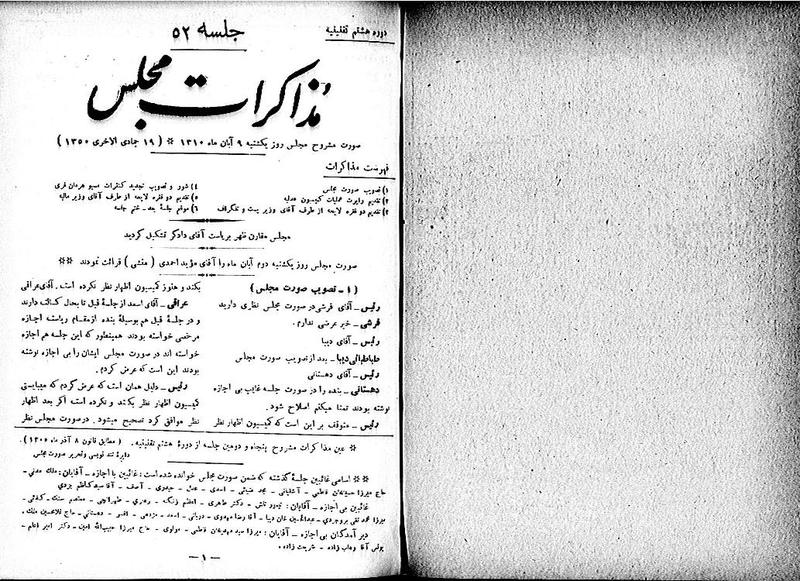 دوره هشتم تقنینیه
جلسه ۵۲
مذاکرات مجلس
صورت مشروح مجلس روز یکشنبه ۹ آبان ماه ۱۳۱۰ * ( ۱۹ جمادی الاخری ۱۳۵۰ )
فهرست مذاکرات
۱) تصویب صورت مجلس
۲) تقدیم راپرت عملیات کمیسیون عدلیه
۳) تقدیم دو فقره لایحه از طرف آقای وزیر پست و تلگراف
۴) شور و تصویب تجدید کنترات مسیو هرمان فری
۵) تقدیم دو فقره لایحه از طرف آقای وزیر مالیه
۶) موقع جلسهٔ بعد - ختم جلسه
مجلس مقارن ظهر بریاست آقای دادگر تشکیل گردید
صورت مجلس روز یکشنبه دوم آبان ماه را آقای مؤید احمدی (منشی) قرائت نمودند **
( ۱ - تصویب صورت مجلس )
رئیس ـ آقای فرشی در صورت مجلس نظری دارید
فرشی ـ خیر عرضی ندارم.
رئیس ـ آقای دیبا
طباطبائی دیبا ـ بعد از تصویب صورت مجلس
رئیس ـ آقای دهستانی
دهستانی ـ بنده را در صورت جلسه غایب بی اجازه
نوشته بودند تمنا میکنم اصلاح شود.
رئیس ـ متوقف بر این است که کمیسیون اظهار نظر
بکند و هنوز کمیسیون اظهار نظر نکرده است. آقای عراقی
عراقی ـ آقای اسعد از جلسهٔ قبل تا بحال کسالت دارند
و در جلسهٔ قبل هم بوسیلهٔ بنده از مقام ریاست اجازه
مرخصی خواسته بودند همینطور که این جلسه هم اجازه
خواسته اند در صورت مجلس ایشان را بی اجازه نوشته
بودند این است که عرض کردم.
رئیس ـ دلیل همان است که عرض کردم که میبایستی
کمیسیون اظهار نظر بکند و نکرده است اگر بعد اظهار
نظر موافق کرد تصحیح میشود. در صورت مجلس نظر
* عین مذاکرات مشروح پنجاه و دومین جلسه از دورهٔ هشتم تقنینیه. (مطابق قانون ۸ آذر ماه ۱۳۰۵)
دایرهٔ تند نویسی و تحریر صورت مجلس
** اسامی غائبین جلسهٔ گذشته که ضمن صورت مجلس خوانده شده است: غائبین با اجازه ـ آقایان: ملک مدنی ـ
حاج میرزا حسینخان فاطمی ـ آشتیانی ـ محمد ضیائی ـ اسدی ـ عدل ـ حیدری ـ آصف ـ آقا سید کاظم یزدی
غائبین بی اجازه ـ آقایان: تیمور تاش ـ دکتر طاهری ـ اعظم زنگنه ـ رهبری ـ طهرانچی ـ معتصم سنک ـ
میرزا محمد تقی بروجردی ـ عبدالحسین خان دیبا ـ آقا رضا مهدوی ـ دربانی ـ اسعد ـ افسر ـ دهستانی ـ حاج غلامحسین ملک.
دیر آمدگان بی اجازه ـ آقایان: میرزا سید مهدیخان فاطمی ـ مولوی ـ حاج میرزا حبیب الله امین ـ دکتر امیر اعلم ـ
یونس آقا وهاب زاده ـ شریعت زاده.
ـ ۱ ـ